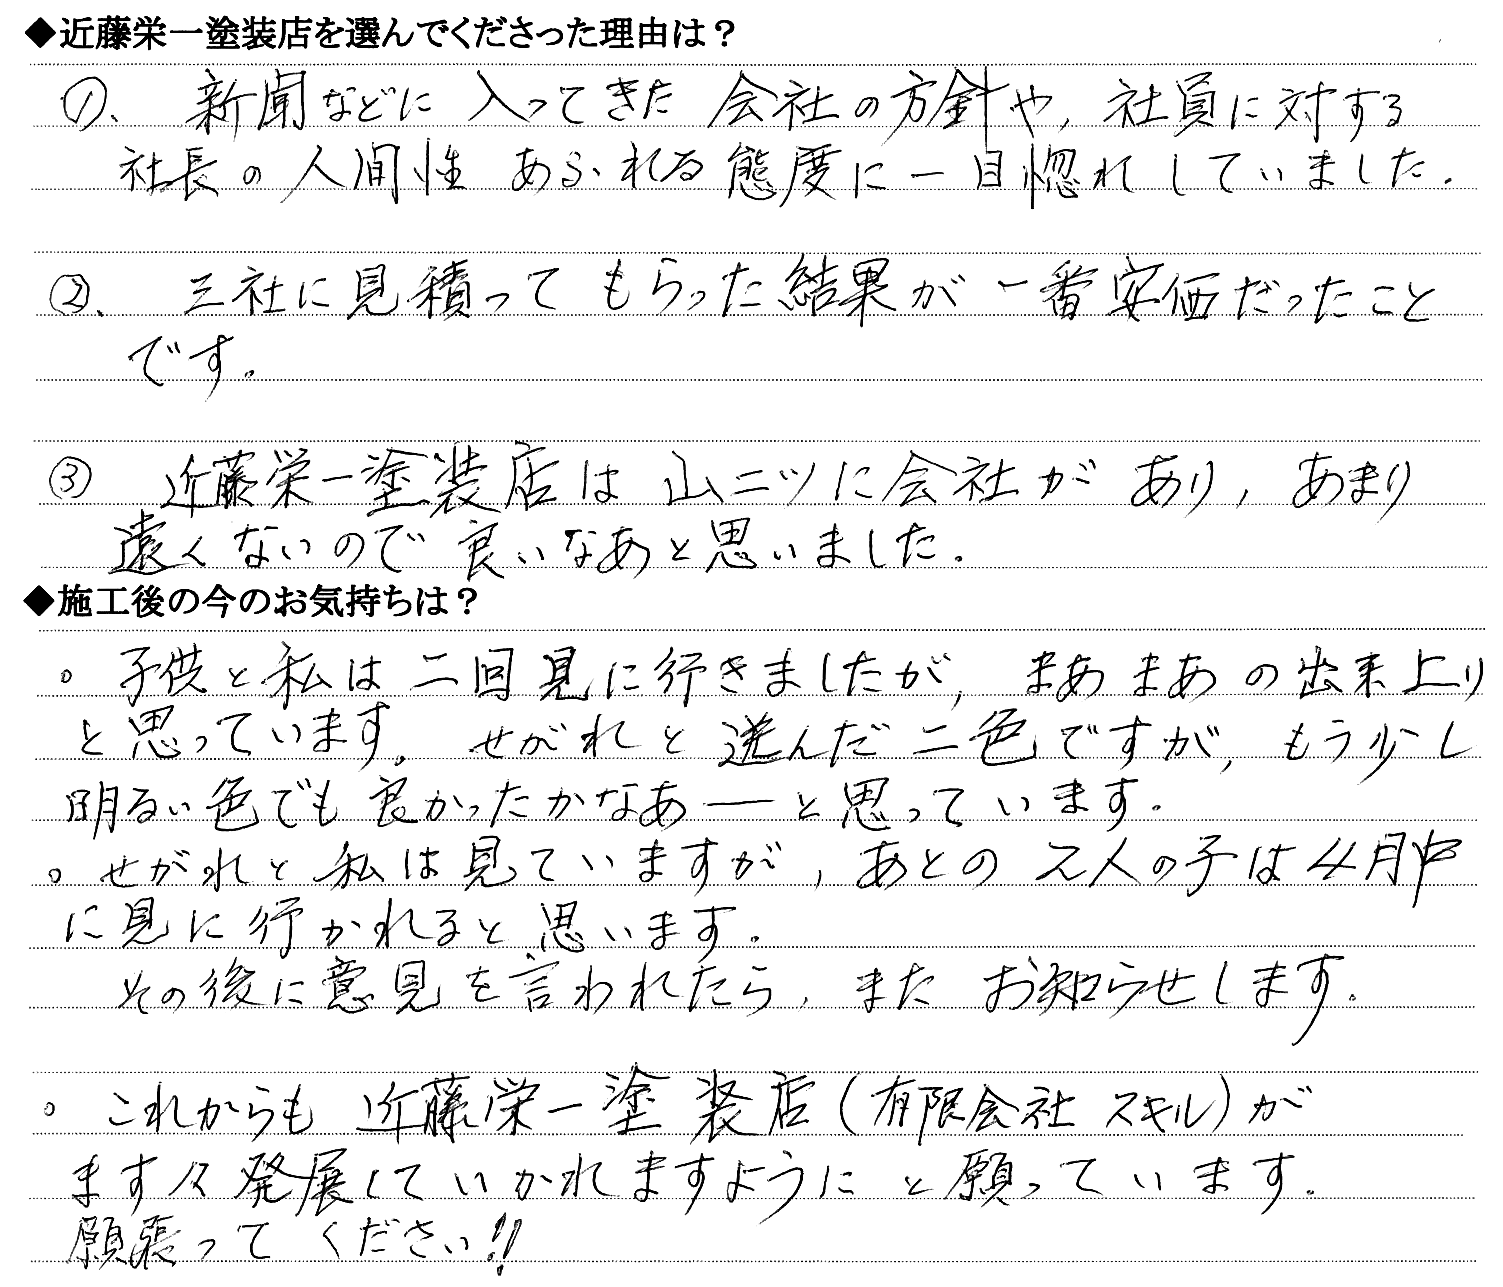 ◆近藤栄一塗装店を選んでくださった理由は？
①、新聞などに入ってきた会社の方針や，社員に対する
社長の人間性あふれる態度に一目惚れしていました．
②、三社に見積ってもらった結果が一番安価だったこと
です。
③ 近藤栄一塗装店は山二ツに会社があり，あまり
遠くないので良いなあと思いました．
◆施工後の今のお気持ちは？
。子供と私は二回見に行きましたが，まあまあの出来上り
と思っています。せがれと選んだ二色ですが，もう少し
明るい色でも良かったかなあ──と思っています．
。せがれと私は見ていますが，あとの二人の子は4月中
に見に行かれると思います．
その後に意見を言われたら，またお知らせします。
。これからも近藤栄一塗装店(有限会社 スキル)が
ます々発展していかれますようにと願っています．
願張ってください!!